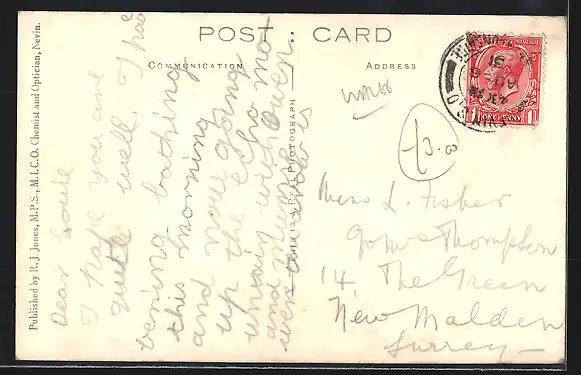 POST CARD
COMMUNICATION
ADDRESS
Published by R. J. Jones, M.P.S., M.I.C.O. Chemist and Optician, Nevin.
THIS IS A REAL PHOTOGRAPH
Dear Louie
I hope you are
quite well. I had
bathing
this morning
and now going
up the echo mo-
untain with Owen
and
ONE PENNY
£3.00
Miss L. Fisher
Thompson
14, The Green
New Malden
Surrey